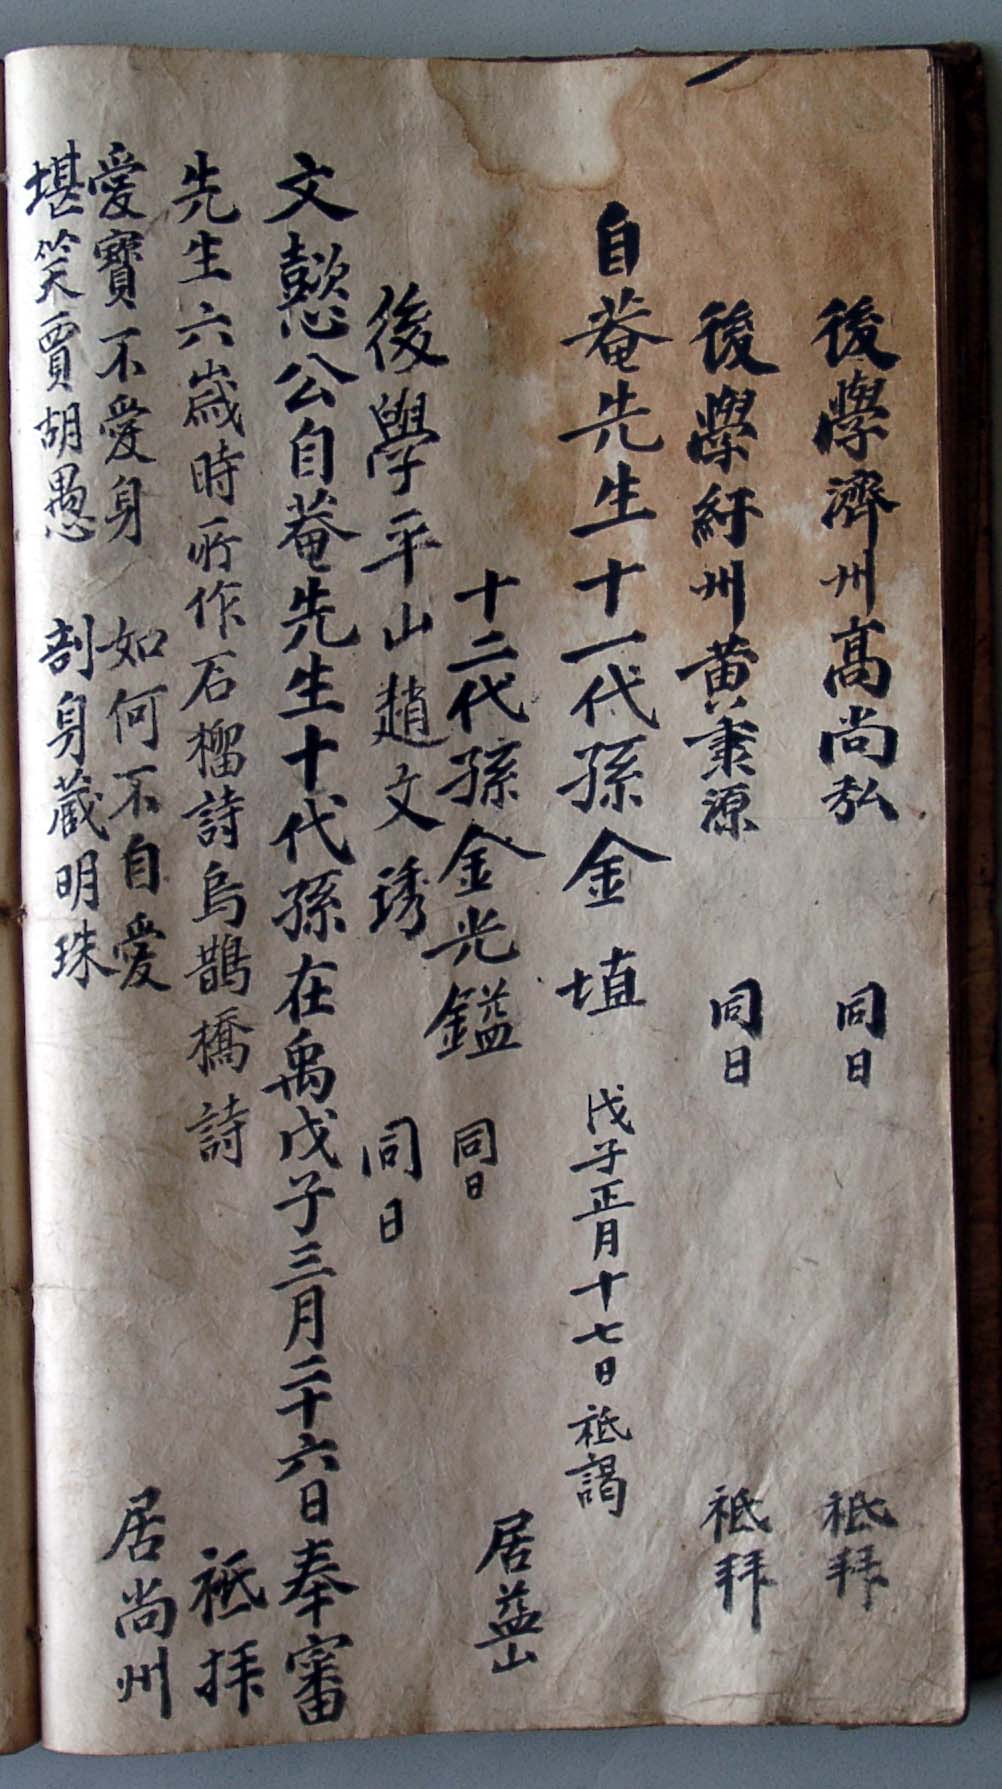 後學濟州高尚弘 同日 祗拜
後學紆州黃秉源 同日 祗拜
自菴先生十一代孫金埴 戊子正月十七日祗謁
十二代孫金光鎰 同日 居益山
後學平山趙文琇 同日
文懿公自菴先生十代孫在禹戊子三月二十六日奉審
先生六歲時所作石榴詩烏鵲橋詩 祗拜
愛寶不愛身 如何不自愛 居尚州
堪笑賈胡愚 剖身藏明珠